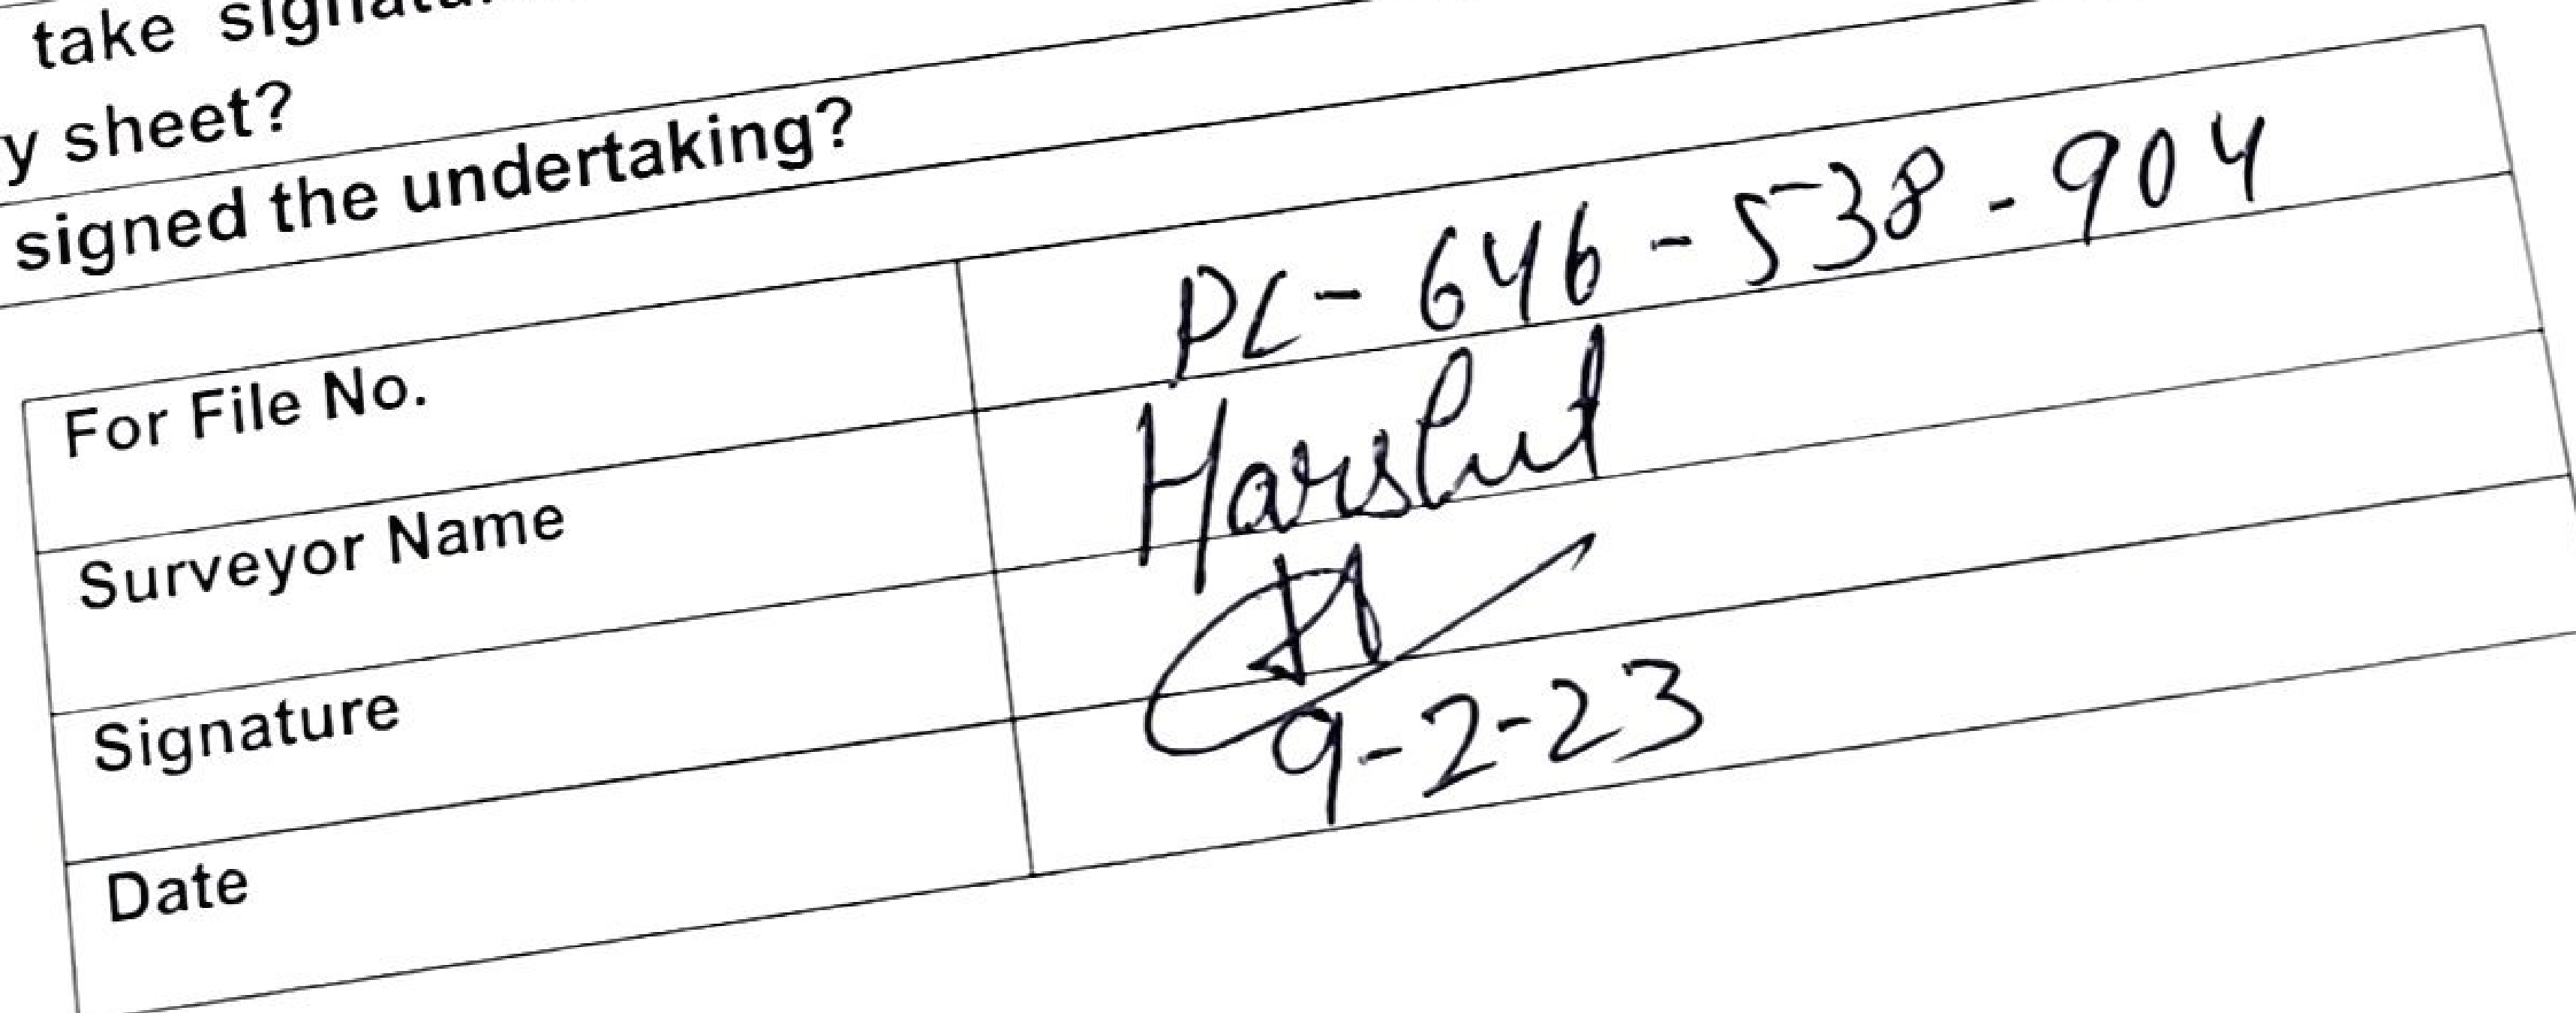 take signatu
y sheet?
signed the undertaking?
For File No. PL-646-538-904
Surveyor Name Harshit
Signature
Date 9-2-23